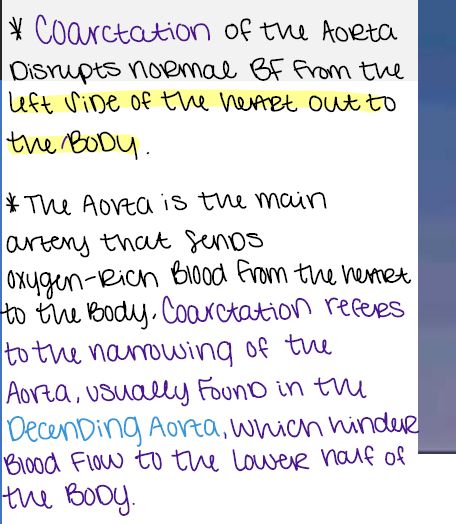 * Coarctation of the Aorta
Disrupts normal BF from the
left side of the heart out to
the Body.
* The Aorta is the main
artery that sends
oxygen-Rich Blood from the heart
to the Body. Coarctation refers
to the narrowing of the
Aorta, usually Found in the
Decending Aorta, which hinder
Blood Flow to the Lower half of
the Body.